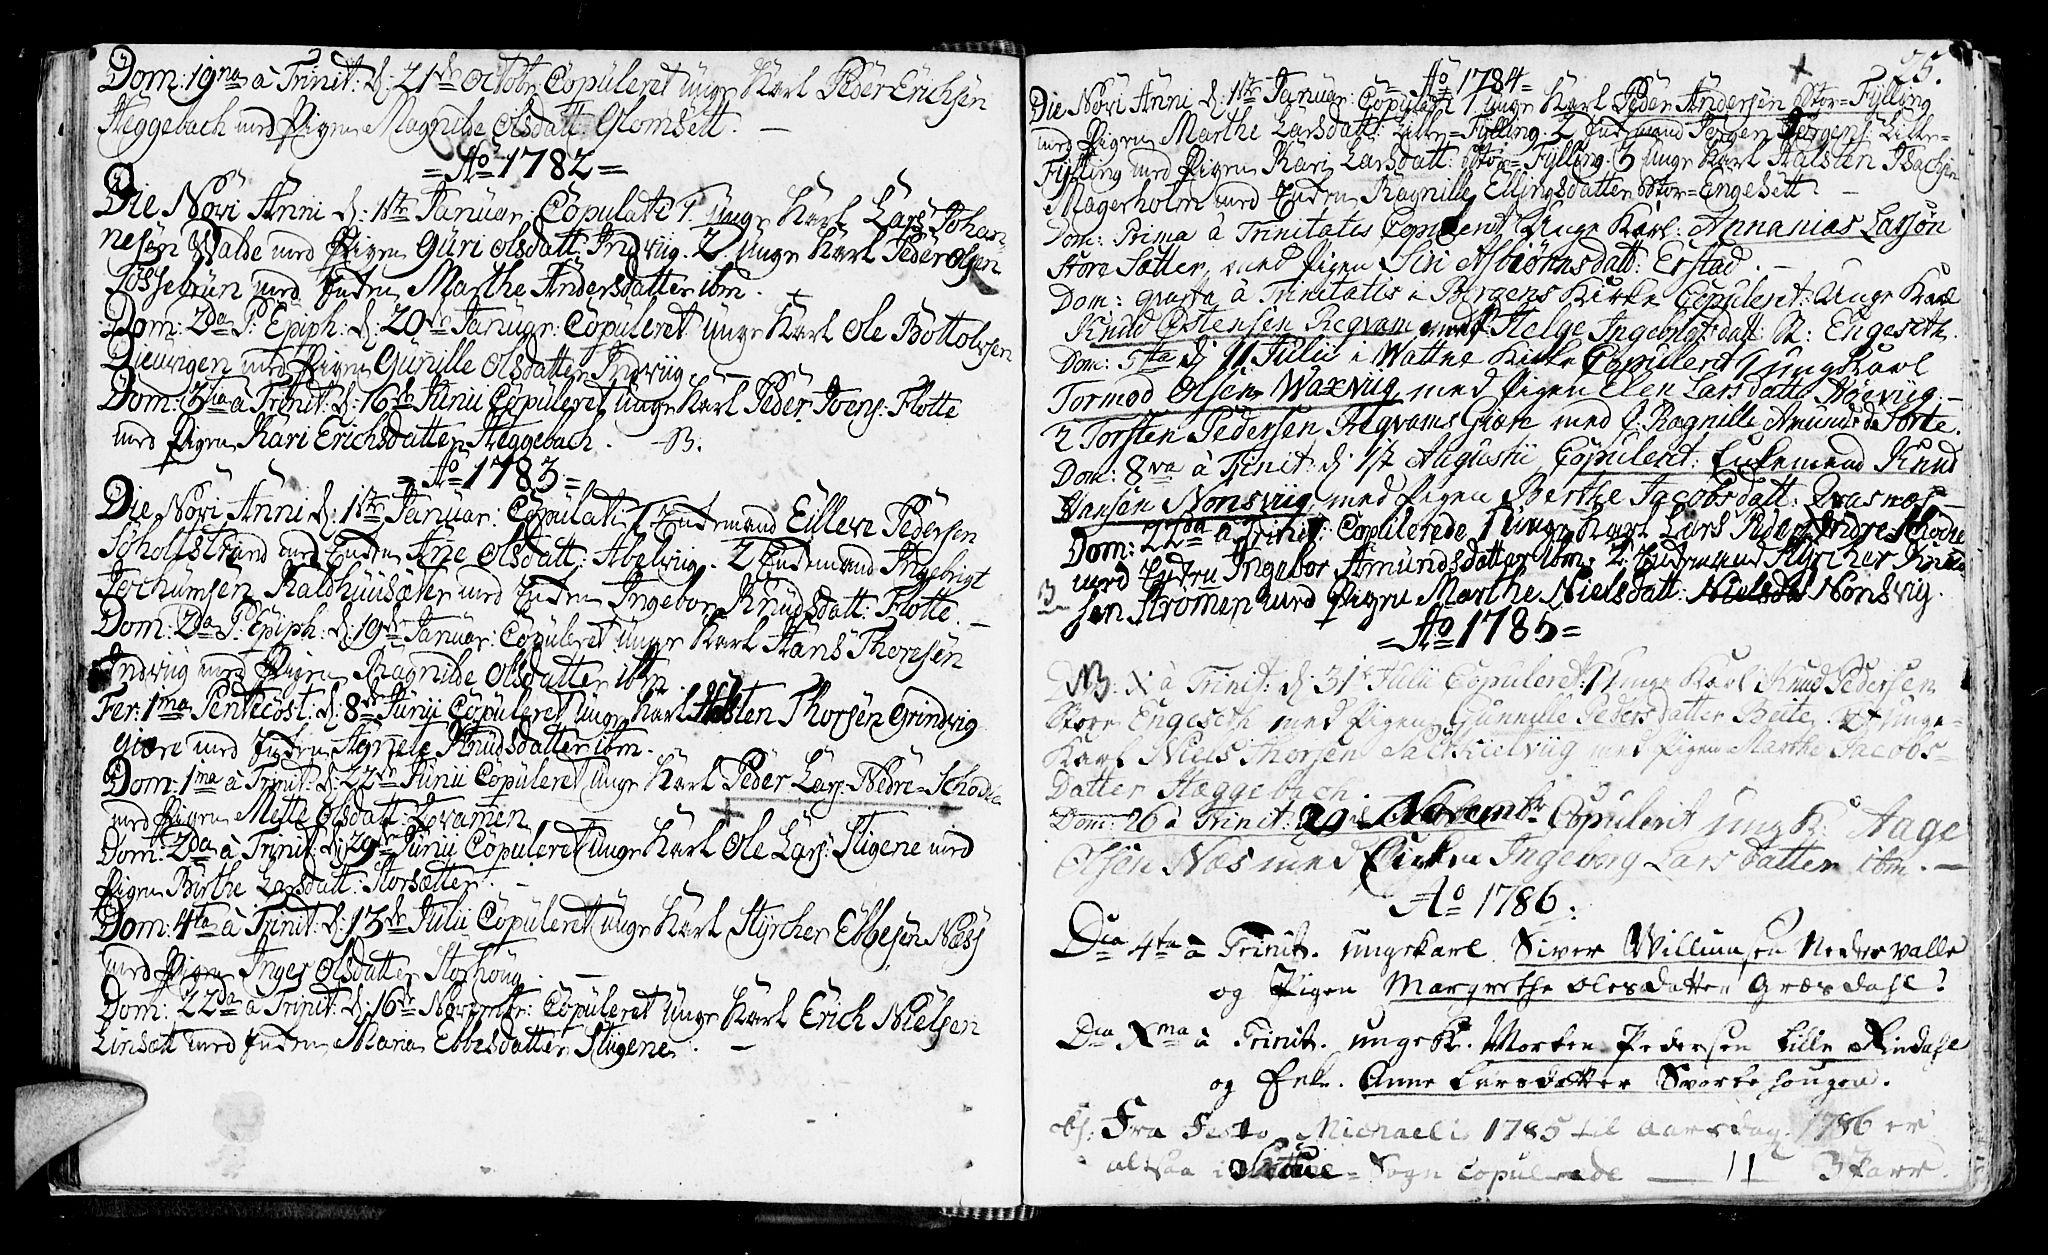 Dom: 19na à Trinit: d: 21de Octobr: Copuleret unge Karl Peder Erichsen
Heggebach med Pigen Magnilde Olsdatt: Glomsett. —
= Ao 1782 =
Die Novi Anni d: 1ste Januar: Copulati 1. unge Karl Lars Johan-
nesøn Walde med Pigen Guri Olsdatt: Indviig. 2. unge Karl Peder Olsen
Fossebrun med Enken Marthe Andersdatter ibm.
Dom: 2da P: Epiph: d: 20de Januar: Copuleret unge Karl Ole Bottolvsen
med Pigen Gunille Olsdatter Indviig. —
Dom: 3tia à Trinit: d: 16de Junii Copuleret unge Karl Peder Joens: Flotte
med Pigen Kari Erichsdatter Heggebach. —
= Ao 1783 =
Die Novi Anni d: 1ste Januar: Copulati 1 Enkemand Eillevr Pedersen
Søholtstrand med Enken Ane Olsdatt: Abelviig. 2 Enkemand Ingebrigt
Jochumsen Kaldhuusæter med Enken Ingebor Knudsdatt: Flotte. —
Dom: 2da P: Epiph: d: 19de Januar: Copuleret unge Karl Hans Thoresen
Indviig med Pigen Ragnilde Olsdatter ibm.
Fer: 1ma Pentecost: d: 8de Junii Copuleret unge Karl Halsten Thorsen Grindvig
giære med Enken Knudsdatter ibm.
Dom: 1ma à Trinit: d: 22de Junii Copuleret unge Karl Peder Lars: Nedre-Schodie
med Pigen Mette Olsdatt:
Dom: 2da à Trinit: d: 29de Junii Copuleret unge Karl Ole Lars: Stigene med
Pigen Birthe Larsdatt: Storsætter. —
Dom: 4ta à Trinit: d: 13de Julii Copuleret unge Karl Styrcher Ebbesøn Næss
med Pigen Inger Olsdatter Storhoug. —
Dom: 22da à Trinit: d: 16de Novembr: Copuleret unge Karl Erich Nielsen
Linsætt med Enken Maria Ebbesdatter Stigene. —
25.
= Ao 1784 =
Die Novi Anni d: 1ste Januar: Copulati 1 unge Karl Peder Andersen Stor=Fylling
med Pigen Marthe Larsdatt: Lille=Fylling. 2 Enkemand Jørgen Jørgens: Lille=
Fylling med Pigen Kari Larsdatt: Stor=Fylling. 3 unge Karl Halsten Isachsen
Magerholm med Enken Ragnille Ellingsdatter Stor=Engesett —
Dom: Prima à Trinitatis Copulerit Unge Karl: Annanias Larsøn
Store Sætter, med Pigen Siri Asbiørnsdatt: Erstad. —
Dom: qvarta à Trinitatis i Borgens Kirke Copulerit: Unge Karl
Knud Østensen Regvam med P: Helge Ingebrigtsdatt: St: Engeseth.
Dom: 5ta d: 11 Julii i Wattne Kirke Copulerit 1 ungekarl
Tormod Olsen Waxviig med Pigen Elen Larsdatter Høeviig. —
2 Torsten Pedersen Regvams Giære med P. Ragnille Amunds D: Sorte.
Dom: 8va à Trinit: d: 1st Augustii Copulerit: Enkemand Knud
Hansen Nonsviig med Pigen Berthe Jacobsdatt:
Dom: 22da à Trinit: Copulerede 1 unge Karl Lars Peders: Indre Schodie
med Enken Ingebor Amundsdatter ibm. 2. Enkemand Styrcher Knud-
sen Strømen med Pigen Marthe Nielsdatt: Nonsvig.
= Ao 1785 =
NB. X à Trinit: d: 31te Julii Copuleret: 1 Unge Karl Knud Pedersen
Store Engeseth med Pigen Gunnille Pedersdatter Beite. 2 Unge-
Karl Niels Thorsen med Pigen Marthe Jacobs-
Datter Hæggebach.
Dom: 26 à Trinit: 20 Novembr Copulerit ung K: Aage
Olsøn Næs med Enken Ingeborg Lars Datter ibm. —
Ao 1786.
Dca 4ta à Trinit. ungekarl Siver Willumsen Nedre Valle
og Pigen Margrethe Olesdatter Græsdahl.
Dca Xma à Trinit. ungeK. Morten Pedersen Lille Rindahl
og Enke. Anne Larsdatter Svortehougen.
obs: Fra Festo Michaeli 1785 til aarsdag 1786 er
altsaa i Sogn Copulerede — 11 Parr.